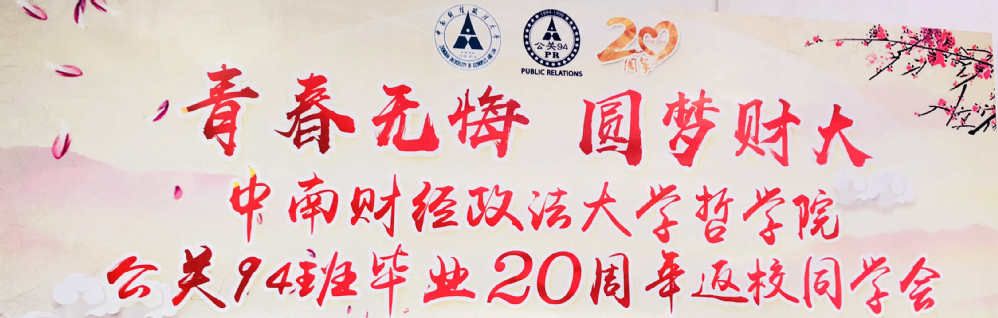 公关94
PR
PUBLIC RELATIONS
20
周年
青春无悔 圆梦财大
中南财经政法大学哲学院
公关94班毕业20周年返校同学会